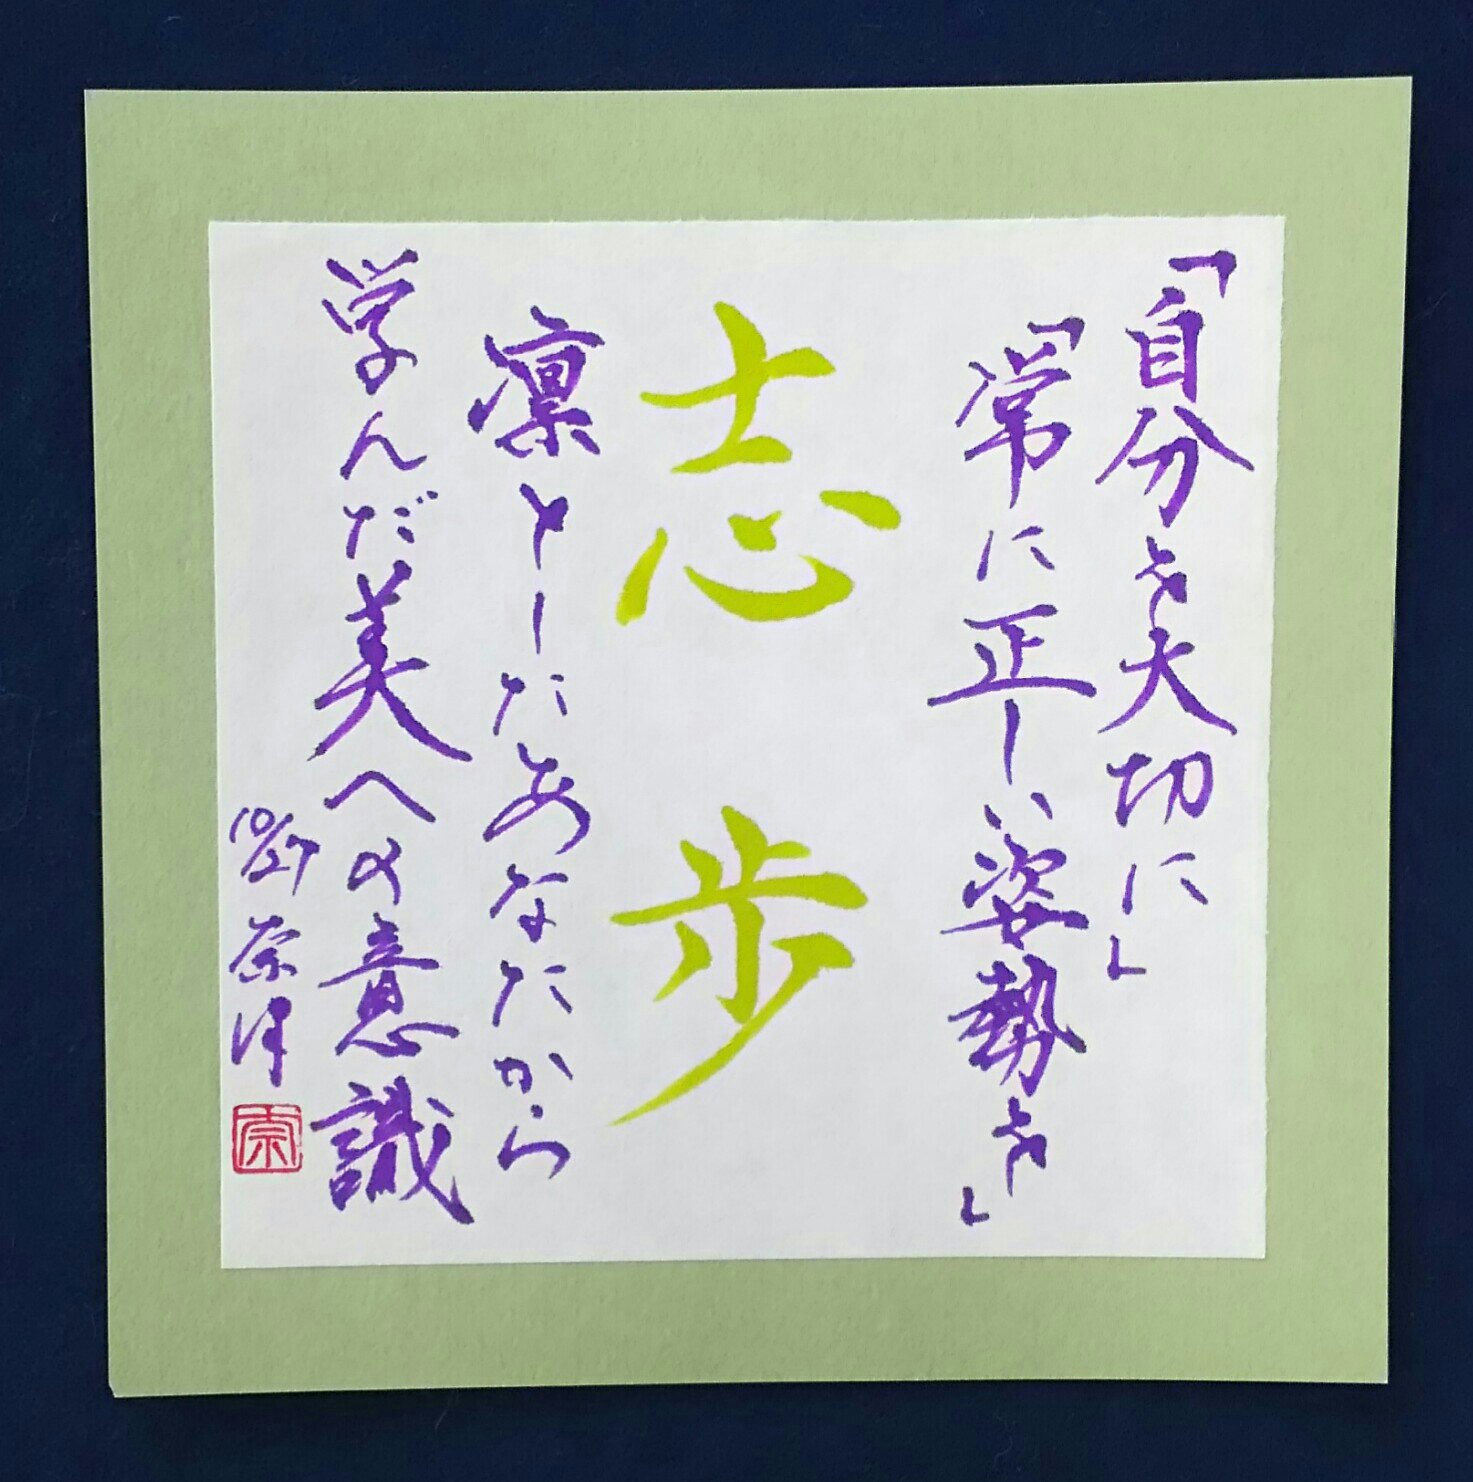 「自分を大切に」
「常に正しい姿勢を」
志歩
凛としたあなたから
学んだ美への意識
10/27